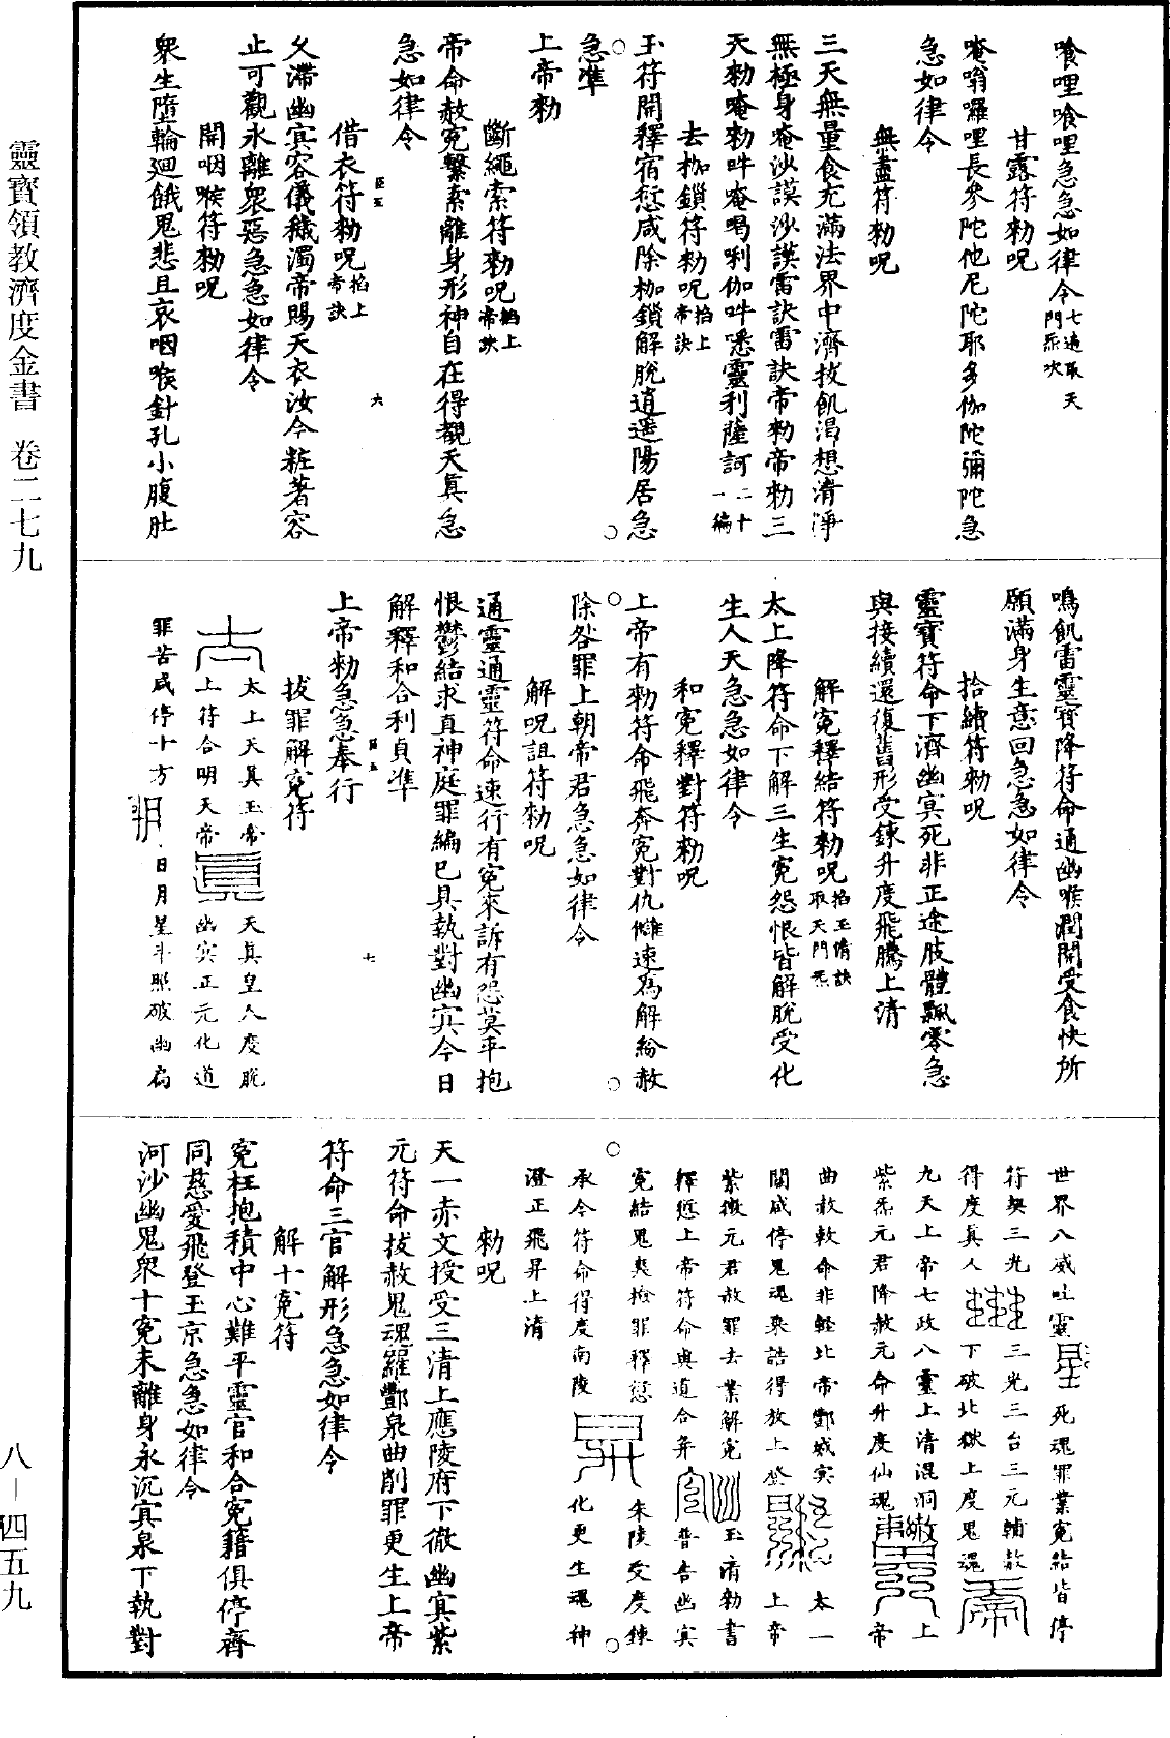 靈寶領教濟度金書 卷二七九
八—四五九
喰哩喰哩急急如律令七遍取天門炁吹
甘露符勑呪
唵嗡囉哩長參陀他尼陀耶多伽陀彌陀急
急如律令
無盡符勑呪
三天無量食充滿法界中濟拔飢渴想清淨
無極身唵沙謨沙謨雷訣雷訣帝勑帝勑三
天勑唵勑吽唵喝唎伽吽㗭靈利薩訶二十一編
去枷鎖符勑呪掐上帝訣
玉符開釋宿愆咸除枷鎖解脫逍遥陽居急
急準
上帝勑
斷繩索符勑呪掐上帝訣
帝命赦寃繫索離身形神自在得覩天真急
急如律令
借衣符勑呪掐上帝訣
久滯幽㝠容儀穢濁帝賜天衣汝今粧著容
止可觀永離衆惡急急如律令
開咽喉符勑呪
衆生墮輪廻餓鬼悲且哀咽喉針孔小腹肚
鳴飢雷靈寶降符命通幽喉潤開受食快所
願滿身生意回急急如律令
拾續符勑呪
靈寶符命下濟幽㝠死非正途肢體飄零急
與接續還復舊形受鍊升度飛騰上清
解寃釋結符勑呪掐玉清訣取天門炁
太上降符命下解三生寃怨恨皆解脫受化
生人天急急如律令
和寃釋對符勑呪
上帝有勑符命飛奔寃對仇讎速爲解紛赦
除咎罪上朝帝君急急如律令
解呪詛符勑呪
通靈通靈符命速行有寃來訴有怨莫平抱
恨鬱結求直神庭罪編已具執對幽㝠今日
解釋和合利貞準
上帝勑急急奉行
拔罪解寃符
太上天真玉帝 天真皇人度脫
上符合明天帝 幽㝠正元化道
罪苦咸停十方 日月星斗照破幽扃
世界八威吐靈 死魂罪業寃結皆停
符契三光 三光三台三元輔赦
得度真人 下破北獄上度鬼魂
九天上帝七政八靈上清混洞 上
紫炁元君降赦元命升度仙魂 帝
曲赦敕命非輕北帝酆城㝠 太一
關咸停鬼魂乘誥得放上登 上帝
紫微元君赦罪去業解寃 玉清勑書
釋愆上帝符命與道合并 普告幽㝠
寃結鬼爽撿罪釋愆 朱陵受度鍊
承今符命得度南陵 化更生魂神
澄正飛昇上清
勑呪
天一赤文授受三清上應陵府下徹幽㝠紫
元符命拔赦鬼魂羅酆泉曲削罪更生上帝
符命三官解形急急如律令
解十寃符
寃枉抱積中心難平靈官和合寃籍俱停齊
同慈愛飛登玉京急急如律令
河沙幽鬼衆十寃未離身永沉㝠泉下執對